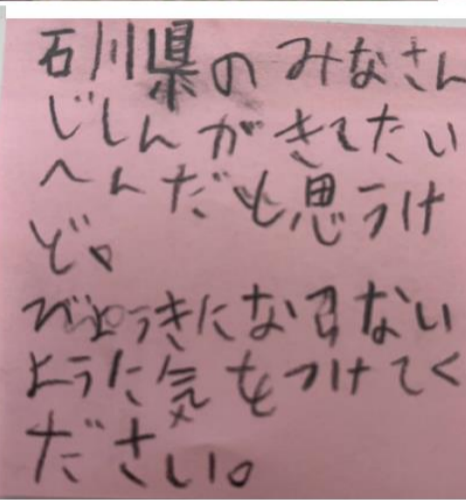 石川県のみなさん
じしんがきてたい
へんだと思うけ
ど。
びょうきにならない
ように気をつけてく
ださい。